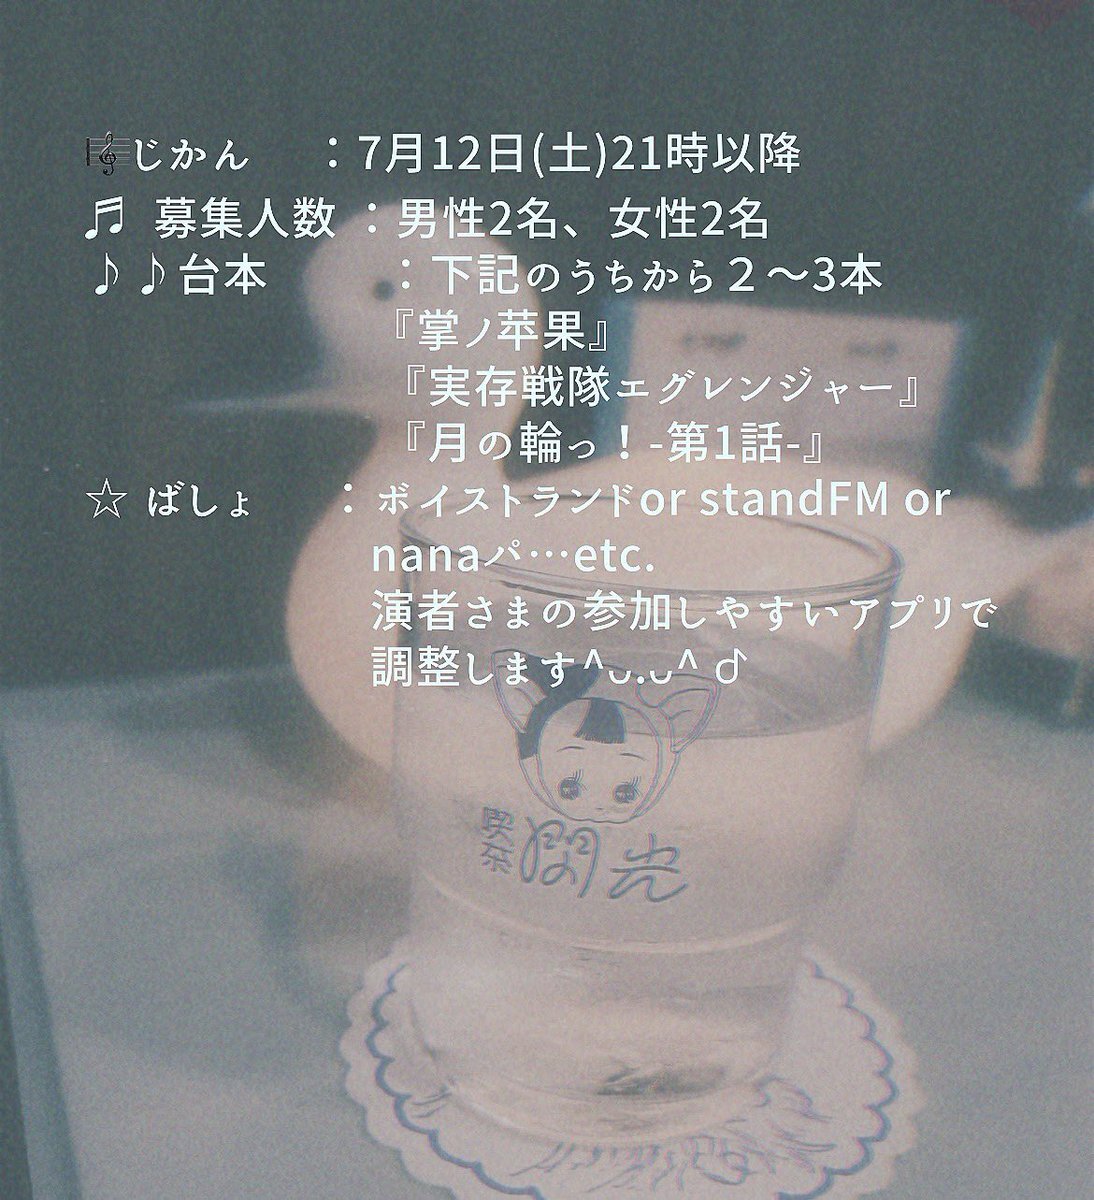 🎼じかん ：7月12日(土)21時以降
♬ 募集人数 ：男性2名、女性2名
♪♪台本 ：下記のうちから２〜3本
『掌ノ苹果』
『実存戦隊エグレンジャー』
『月の輪っ！-第1話-』
☆ ばしょ ：ボイストランドor standFM or
nanaパ…etc.
演者さまの参加しやすいアプリで
調整します^ᴗ.ᴗ^ ♪
喫茶
閃光